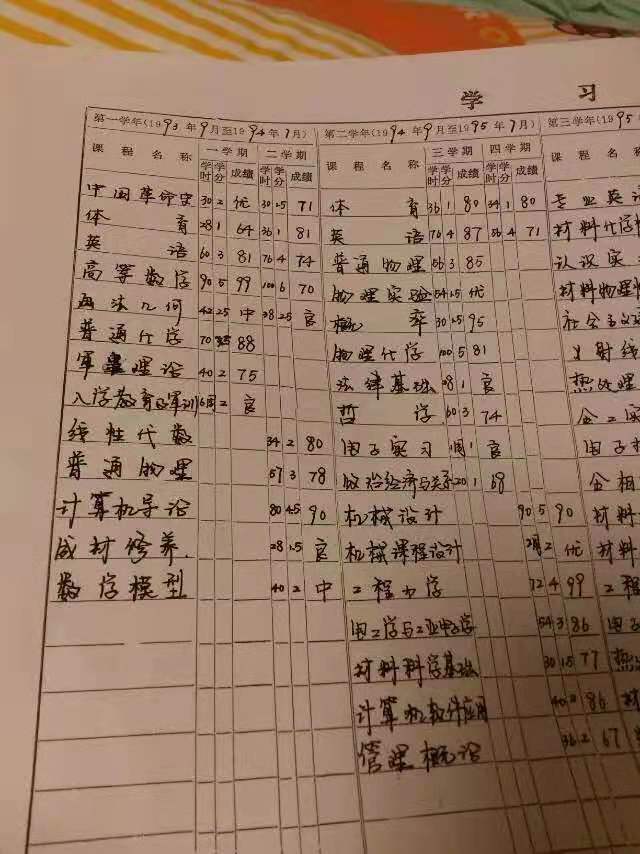 学 习
第一学年(1993年9月至1994年7月) 第二学年(1994年9月至1995年7月) 第三学年(1995
课程名称 一学期 二学期 课程名称 三学期 四学期
学时 学分 成绩 学时 学分 成绩 学时 学分 成绩 学时 学分 成绩
中国革命史 30 2 优 30 1.5 71 体育 36 1 80 34 1 80 专业英语
体育 28 1 64 36 1 81 英语 76 4 87 56 4 71 材料化学
英语 60 3 81 76 4 74 普通物理 56 3 85 认识实
高等数学 90 5 99 100 6 70 物理实验 54 1.5 优 材料物理
画法几何 42 2.5 中 38 2.5 良 概率 30 1.5 95 社会主义
普通化学 70 3.5 88 物理化学 100 5 81 X射线
军事理论 40 2 75 法律基础 28 1 良 热处理
入学教育及军训 6周 2 良 哲学 60 3 74 金工实
线性代数 34 2 80 电子实习 1周 1 良 电子
普通物理 57 3 78 政治经济与关系 20 1 68 金相
计算机导论 80 4.5 90 机械设计 90 5 90 材料
成材修养 28 1.5 良 机械课程设计 2周 2 优 材料
数学模型 40 2 中 工程力学 72 4 99 工程
电工学与工业电子学 54 3 86 电子
材料科学基础 30 1.5 77 热
计算机软件应用 40 2 86 材
管理概论 36 2 67